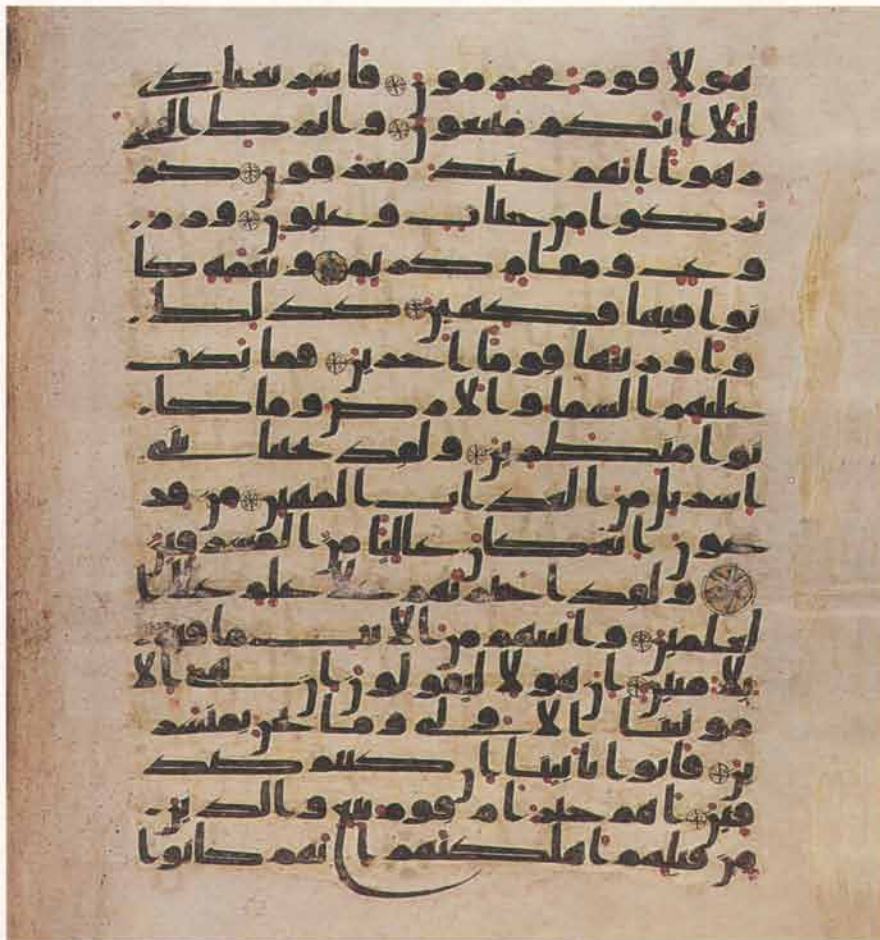 هولا قوم مجرمون فاسر بعبادى
ليلا انكم متبعون واترك البحر
رهوا انهم جند مغرقون كم
تركوا من جنات وعيون وزر
وع ومقام كريم ونعمة كا
نوا فيها فكهين كذلك
واورثنها قوما اخرين فما بكت
عليهم السما والارض وما كا
نوا منظرين ولقد نجينا بنى
اسريل من العذاب المهين من فر
عون انه كان عاليا من المسرفين
ولقد اخترنهم على علم على ا
لعلمين واتينهم من الايت ما فيه
بلا مبين ان هولا ليقولون ان هى الا
موتتنا الاولى وما نحن بمنشر
ين فاتوا بابائنا ان كنتم صد
قين اهم خير ام قوم تبع والذين
من قبلهم اهلكنهم انهم كانوا